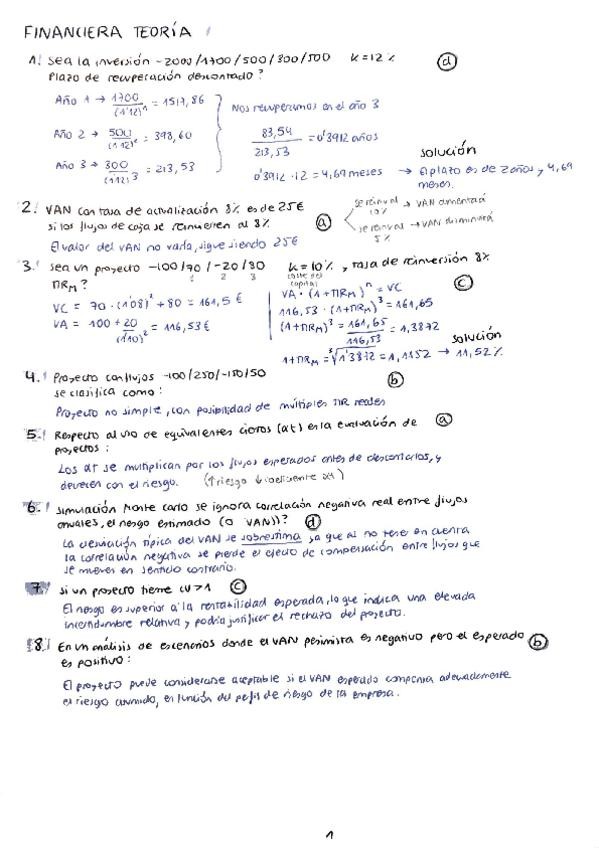 FINANCIERA TEORÍA
1. Sea la inversión -2000/1700/500/300/500 k=12% (d)
Plazo de recuperación descontado?
Año 1 → 1700/(1'12)¹ = 1517,86
Año 2 → 500/(1'12)² = 398,60
Año 3 → 300/(1'12)³ = 213,53
Nos recuperamos en el año 3
83,54/213,53 = 0'3912 años
0'3912 · 12 = 4,69 meses
solución
→ El plazo es de 2 años y 4,69
meses.
2. VAN con tasa de actualización 8% es de 25€
si los flujos de caja se reinvierten al 8% (a)
El valor del VAN no varía, sigue siendo 25€
se reinv al 10% → VAN aumentará
se reinv al 5% → VAN disminuirá
3. Sea un proyecto -100/70/-20/80 k=10%, tasa de reinversión 8%
1 2 3
coste del capital
TIR_M? (c)
VC = 70 · (1'08)² + 80 = 161,5 €
VA = 100 + 20/(1'10)² = 116,53€
VA · (1+TIR_M)ⁿ = VC
116,53 · (1+TIR_M)³ = 161,65
(1+TIR_M)³ = 161,65/116,53 = 1,3872
1+TIR_M = ³√1'3872 = 1,1152 → 11,52%
solución
4. Proyecto con flujos -100/250/-150/50
se clasifica como: (b)
Proyecto no simple, con posibilidad de múltiples TIR reales
5. Respecto al uso de equivalentes ciertos (αt) en la evaluación de (a)
proyectos:
Los αt se multiplican por los flujos esperados antes de descontarlos, y
decrecen con el riesgo. (↑riesgo ↓coeficiente αt)
6. Simulación Monte Carlo se ignora correlación negativa real entre flujos
anuales, el riesgo estimado (σ VAN)? (d)
La desviación típica del VAN se sobrestima ya que al no tener en cuenta
la correlación negativa se pierde el efecto de compensación entre flujos que
se mueven en sentido contrario.
7. si un proyecto tiene CV > 1 (c)
El riesgo es superior a la rentabilidad esperada, lo que indica una elevada
incertidumbre relativa y podría justificar el rechazo del proyecto.
8. En un análisis de escenarios donde el VAN pesimista es negativo pero el esperado (b)
es positivo:
El proyecto puede considerarse aceptable si el VAN esperado compensa adecuadamente
el riesgo asumido, en función del perfil de riesgo de la empresa.
1